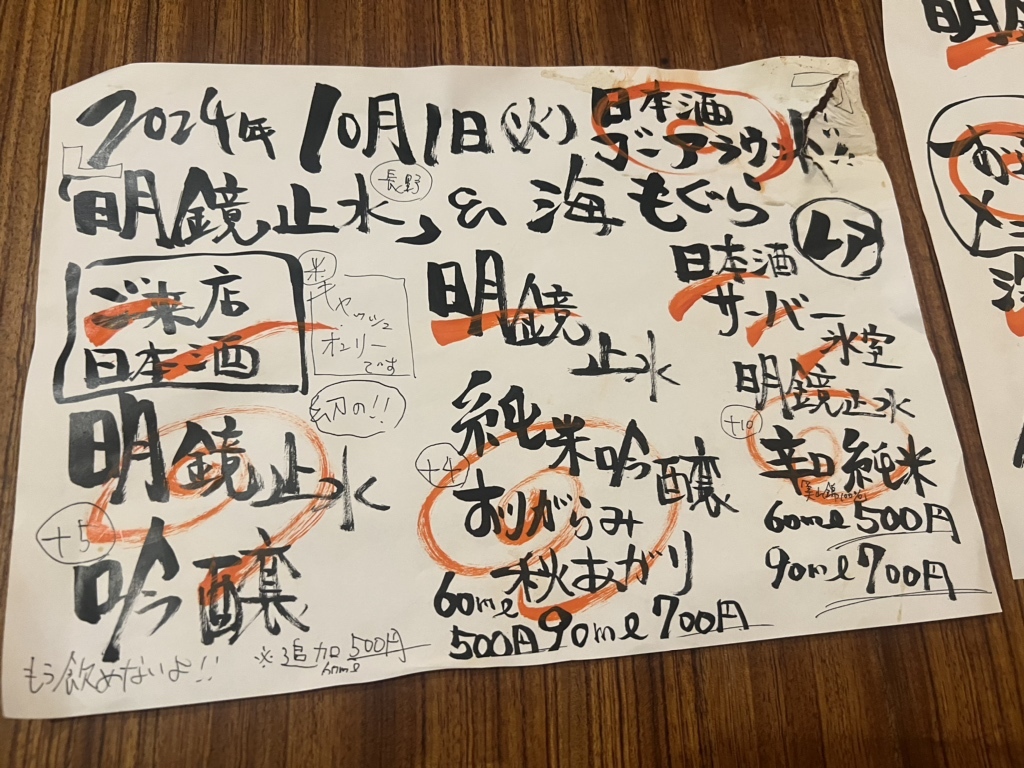 2024年10月1日(火)
日本酒
グーアラウンド
「明鏡止水」&海もぐら
長野
レア
ご来店
日本酒
キャッシュ
オンリー
です
幻の!!
明鏡止水
+5
吟醸
もう飲めないよ!!
※追加500円
60ml
明鏡
止水
純米吟醸
+4
おりがらみ
秋あがり
60ml
500円
90ml 700円
日本酒
サーバー
氷室
明鏡止水
+10
辛口純米
60ml 500円
90ml 700円
明